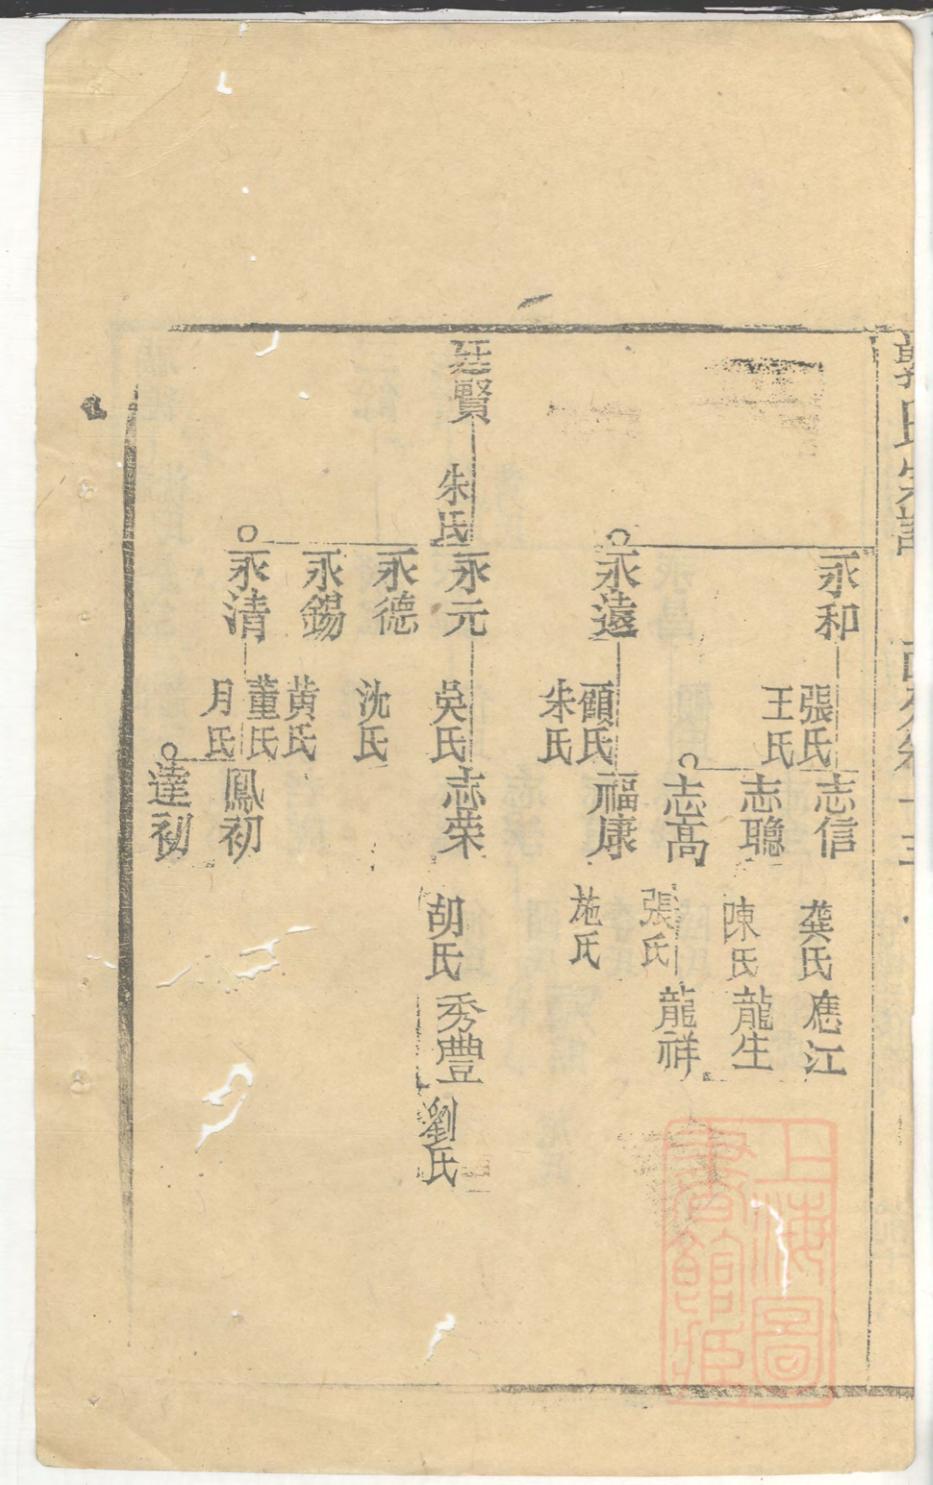 氏宗譜
永和
張氏
王氏
志信
龔氏
應江
志聰
陳氏
龍生
志高
張氏
龍祥
永遠
顧氏
朱氏
福康
施氏
廷賢
朱氏
永元
吳氏
志荣
胡氏
秀豐
劉氏
永德
沈氏
永錫
黄氏
永清
董氏
月氏
鳳初
達初
上海圖
書館藏